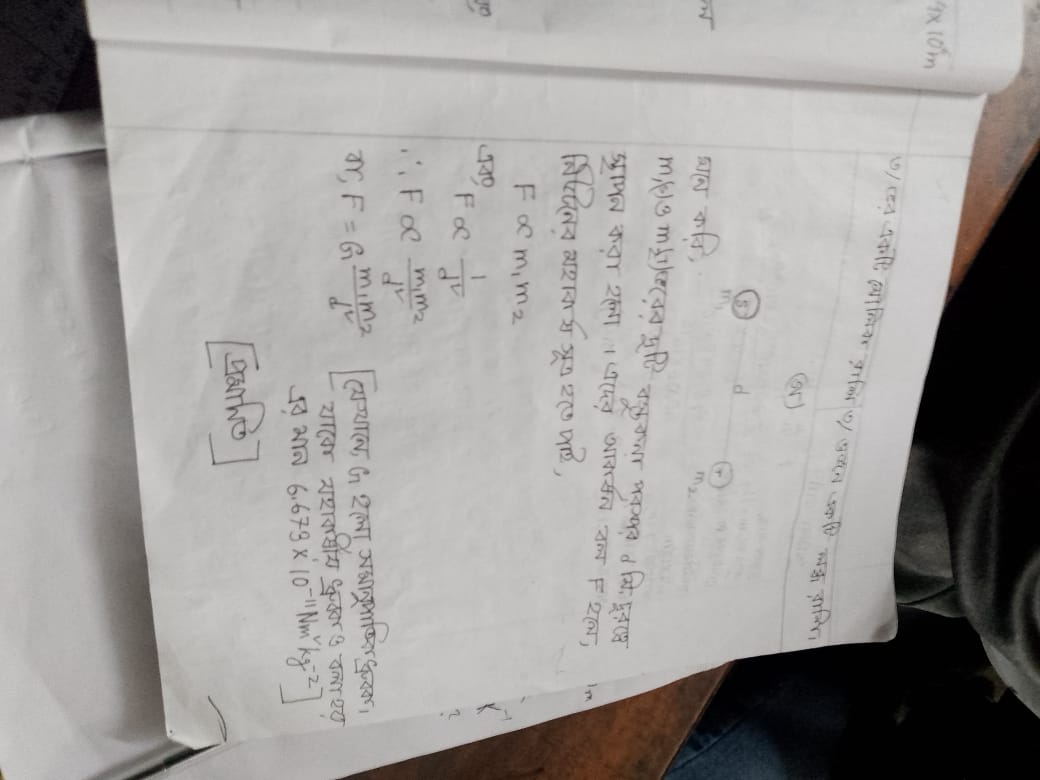 4×10⁶m
৩/ বেগ একটি মৌলিক রাশি ৩/ ওজন একটি লব্ধ রাশি,
(অ)
S d T
m₁ m₂
মনে করি,
m₁ ও m₂ ভরের দুটি বস্তুকনা পরস্পর d মি. দূরত্বে
স্থাপন করা হলো। এদের আকর্ষন বল F হলে,
নিউটনের মহাকর্ষ সূত্র হতে পাই,
F ∝ m₁m₂
এবং, F ∝ 1/d²
∴ F ∝ m₁m₂/d²
বা, F = G m₁m₂/d² [যেখানে G হলো সমানুপাতিক ধ্রুবক,
যাকে মহাকর্ষীয় ধ্রুবক ও বলা হয়,
এর মান 6.673 × 10⁻¹¹Nm²kg⁻²]
[প্রমাণিত]